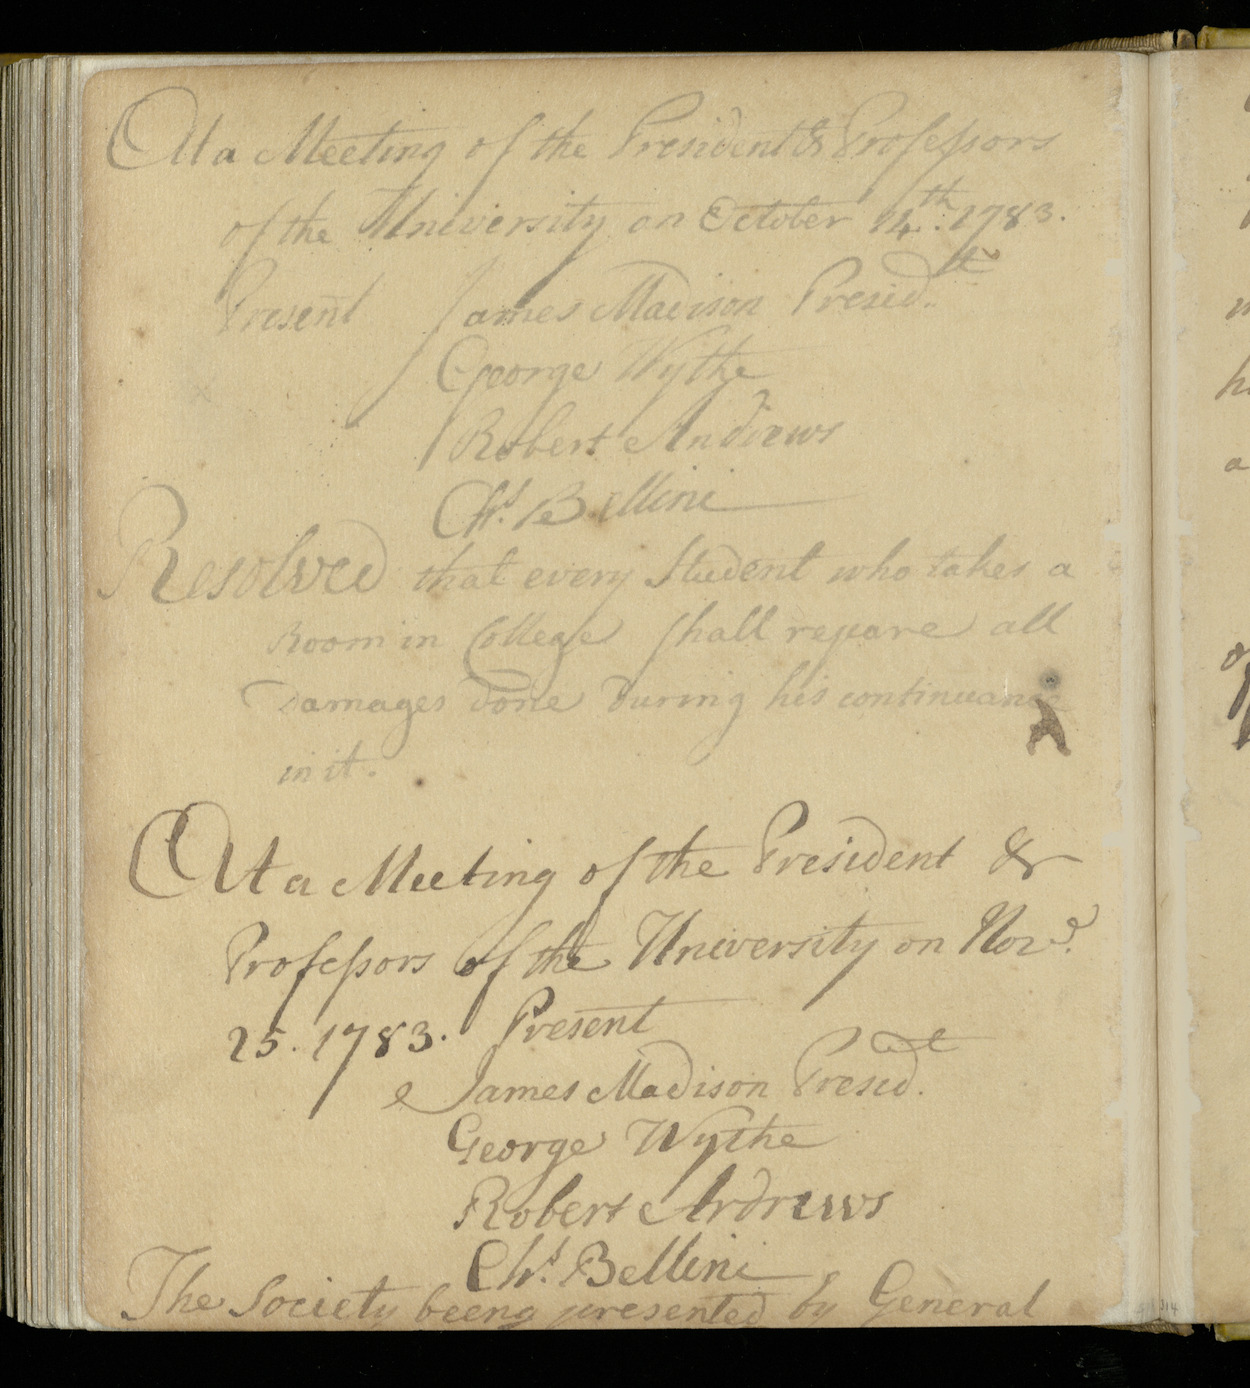 At a Meeting of the President & Professors
of the University on October 14th. 1783.
Present James Madison Presid.t
George Wythe
Robert Andrews
Chs. Bellini
Resolved that every Student who takes a
Room in College shall repare all
Damages done during his continuance
in it.
At a Meeting of the President &
Professors of the University on Novr.
25. 1783. Present
James Madison Presid.t
George Wythe
Robert Andrews
Chs. Bellini
The Society being presented by General